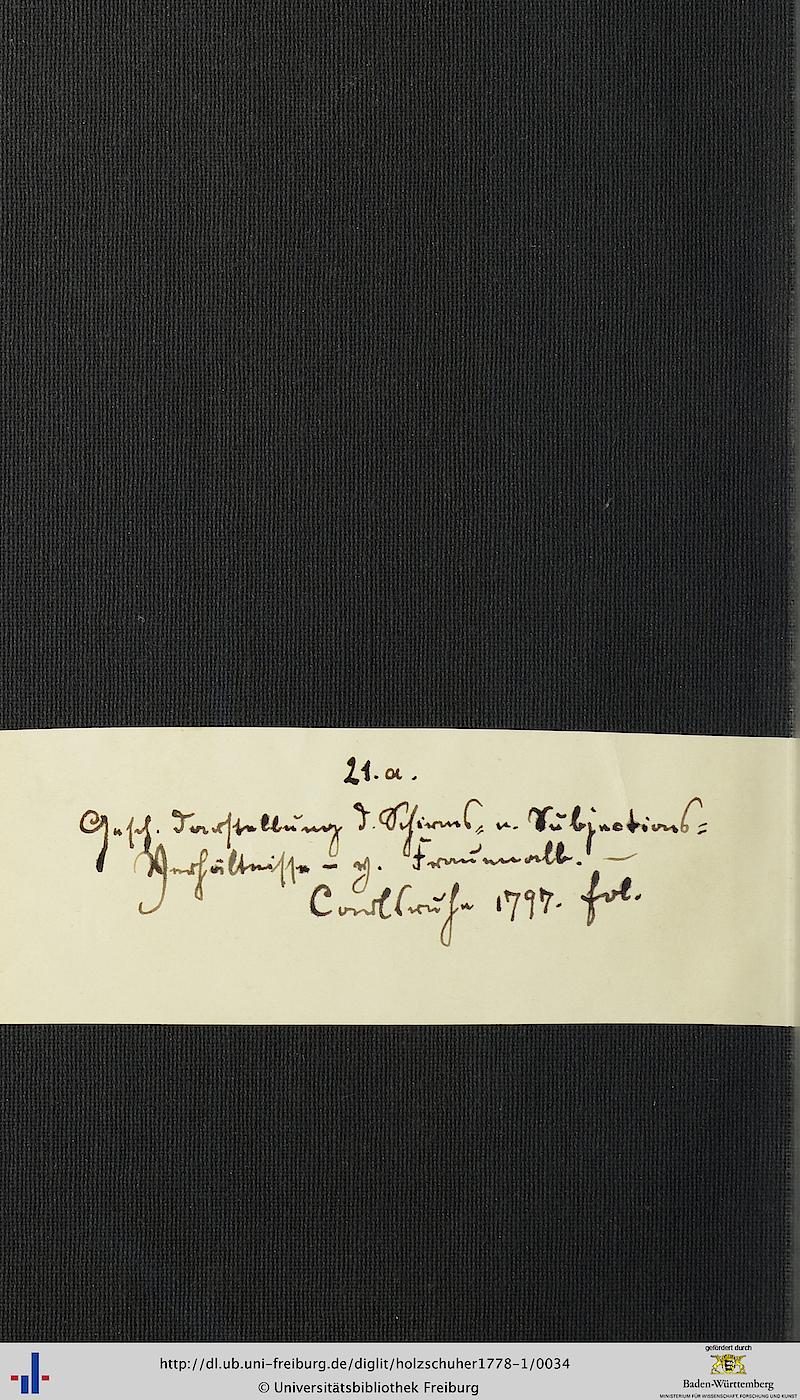 21. a.
Gesch. Darstellung d. Schirms- u. Subjections-
Verhältnisse - v. Frauenalb. —
Carlsruhe 1797. fol.
http://dl.ub.uni-freiburg.de/diglit/holzschuher1778-1/0034
© Universitätsbibliothek Freiburg
gefördert durch
Baden-Württemberg
MINISTERIUM FÜR WISSENSCHAFT, FORSCHUNG UND KUNST